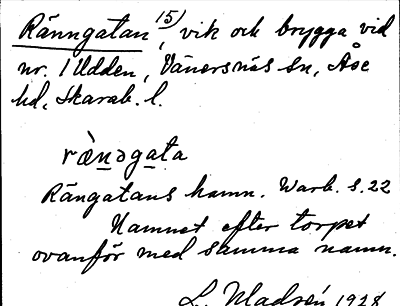 Ränngatan 15), vik och brygga vid
nr. 1 Udden, Vänersnäs sn, Åse
hd, Skarab. l.
rä̀nəgata
Rängatans hamn. Warb. s. 22
Namnet efter torpet
ovanför med samma namn.
L. Madsén 1928